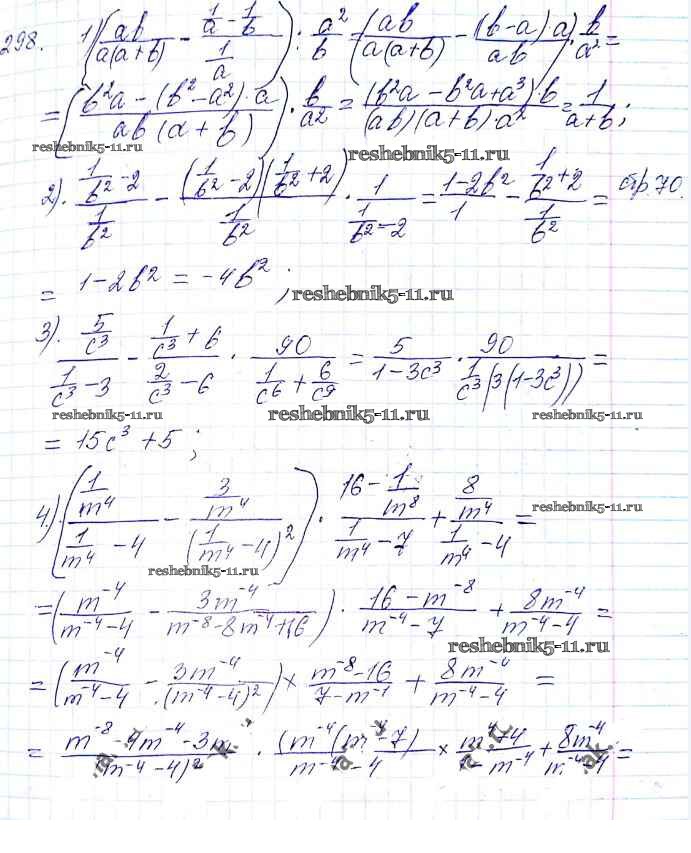 298. 1) (ab/(a(a+b)) - (1/a - 1/b)/(1/a)) : a²/b = (ab/(a(a+b)) - (b-a)a/(ab)) · b/a² =
= ((b²a - (b² - a²)·a)/(ab(a+b))) · b/a² = ((b²a - b²a + a³)·b)/((ab)(a+b)·a²) = 1/(a+b);
reshebnik5-11.ru
reshebnik5-11.ru
2). (1/b² - 2)/(1/b²) - ((1/b² - 2)(1/b² + 2))/(1/b²) · 1/(1/b² - 2) = (1-2b²)/1 - (1/b² + 2)/(1/b²) = стр. 70.
= 1-2b² = -4b²;
reshebnik5-11.ru
3). (5/c³)/(1/c³ - 3) - (1/c³ + 6)/(2/c³ - 6) · 90/(1/c⁶ + 6/c⁹) = 5/(1-3c³) · 90/(1/c³(3(1-3c³))) =
reshebnik5-11.ru reshebnik5-11.ru reshebnik5-11.ru
= 15c³ + 5;
4.) ((1/m⁴)/(1/m⁴ - 4) - (3/m⁴)/(1/m⁴ - 4)²) · (16 - 1/m⁸)/(1/m⁴ - 7) + (8/m⁴)/(1/m⁴ - 4) =
reshebnik5-11.ru
reshebnik5-11.ru
= (m⁻⁴/(m⁻⁴ - 4) - 3m⁻⁴/(m⁻⁸ - 8m⁻⁴ + 16)) · (16 - m⁻⁸)/(m⁻⁴ - 7) + 8m⁻⁴/(m⁻⁴ - 4) =
reshebnik5-11.ru
= (m⁻⁴/(m⁻⁴ - 4) - 3m⁻⁴/(m⁻⁴ - 4)²) × (m⁻⁸ - 16)/(7 - m⁻¹) + 8m⁻⁴/(m⁻⁴ - 4) =